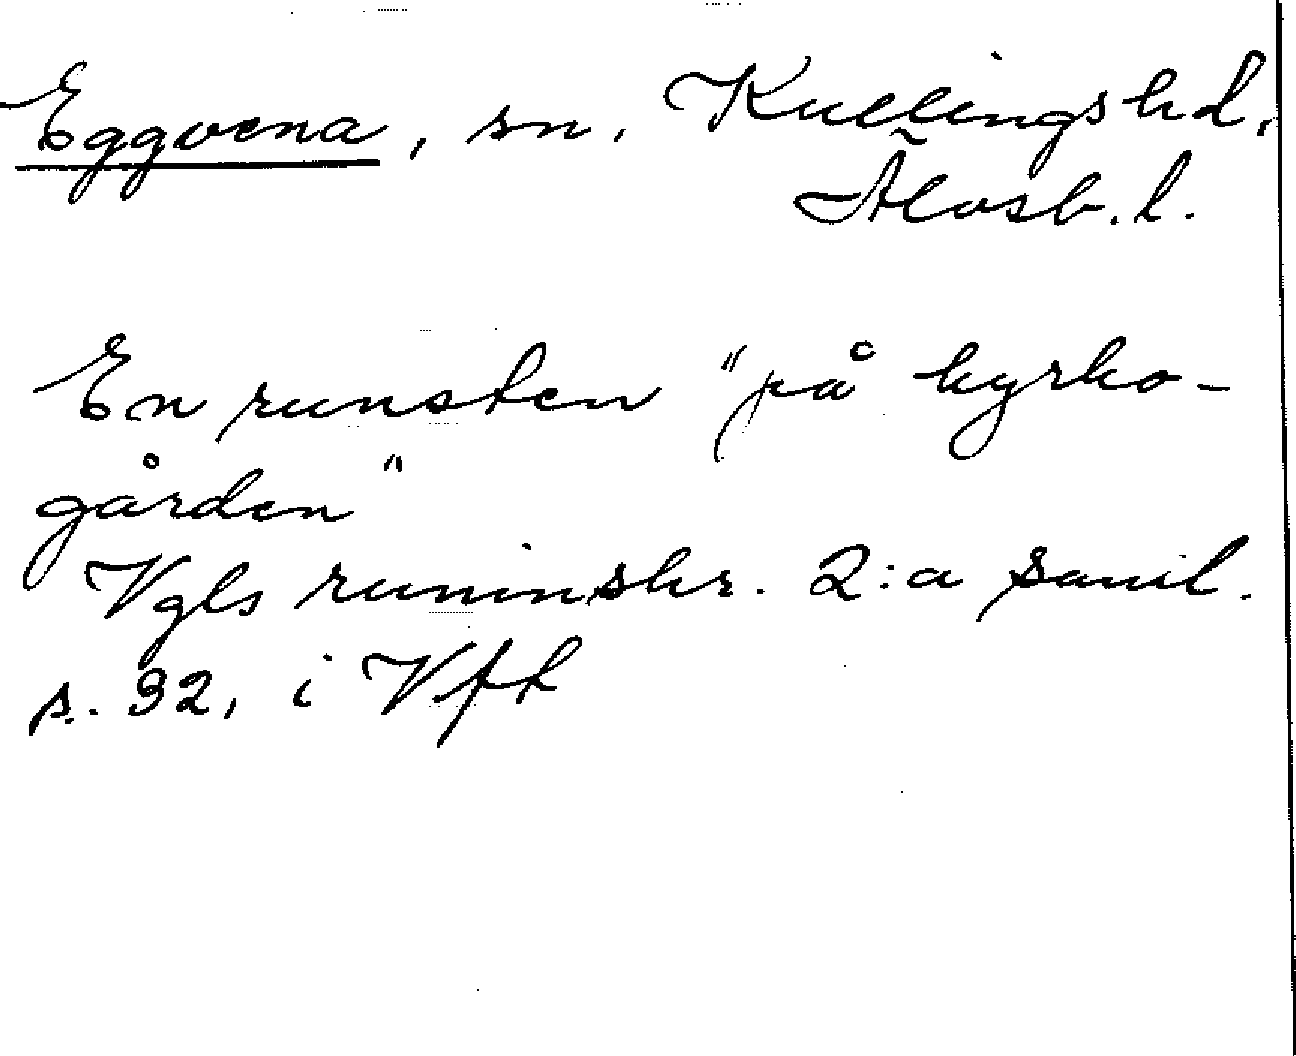 Eggvena, sn, Kullings hd,
Älvsb. l.
En runsten "på kyrko-
gården"
Vgls runinskr. 2:a saml.
s. 32, i Vft